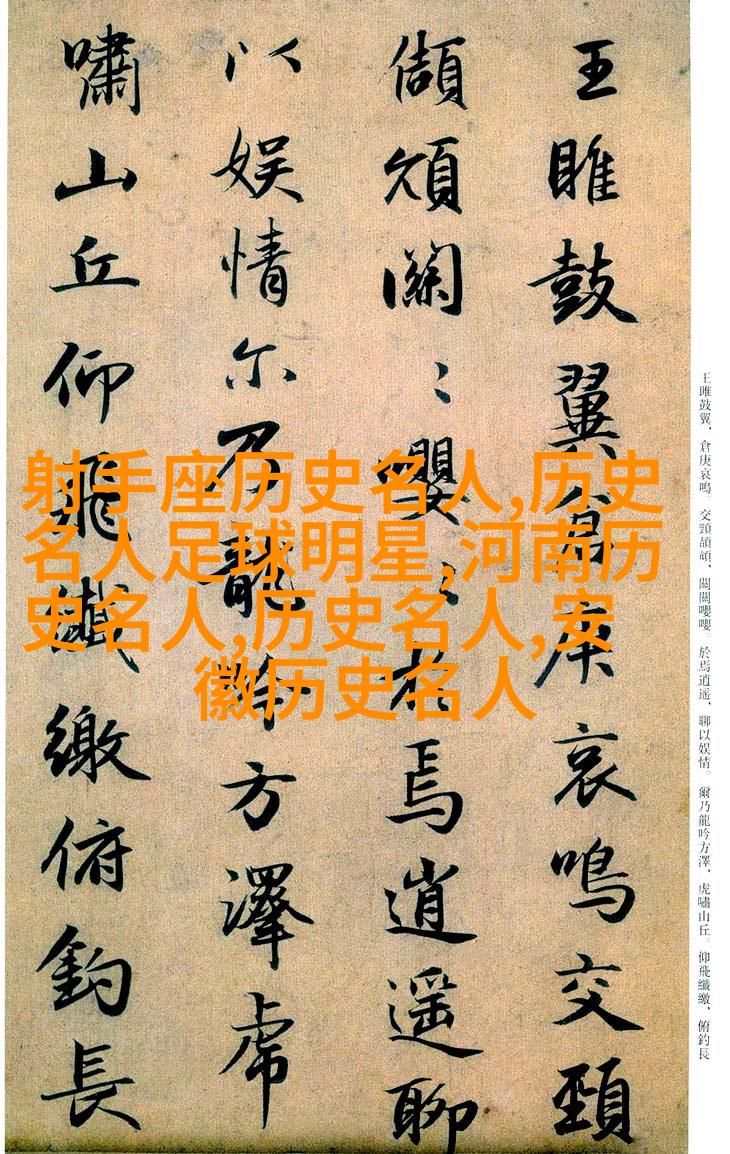 王雎鼓翼倉庚哀鳴交頸
頡頏關〻嚶〻於焉逍遥聊
以娱情尔乃龍吟方澤虎
嘯山丘仰飛纖繳俯釣長
射手座历史名人,历史
名人足球明星,河南历
史名人,历史名人,安
徽历史名人
王雎鼓翼、倉庚哀鳴。交頸頡頏、關關嚶嚶。於焉逍遥、聊以娱情。爾乃龍吟方澤、虎嘯山丘。仰飛纖繳、俯釣長